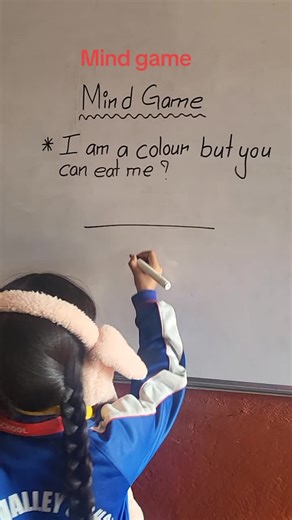 Mind game
Mind Game
* I am a colour but you
can eat me?
SCHOOL